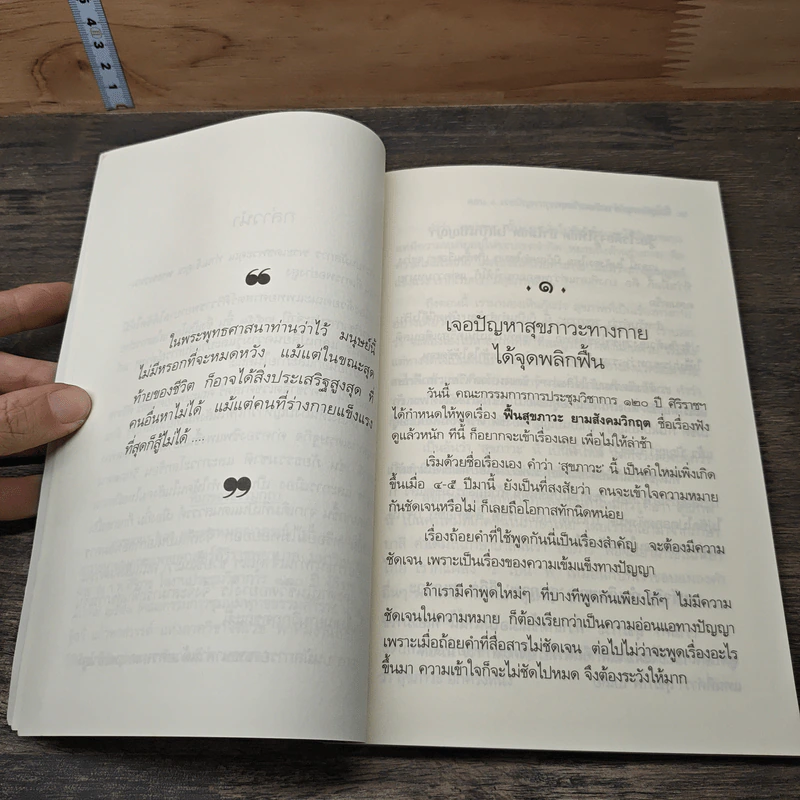 5
4
3
2
1
❝
ในพระพุทธศาสนาท่านว่าไว้ มนุษย์นี้
ไม่มีหรอกที่จะหมดหวัง แม้แต่ในขณะสุด
ท้ายของชีวิต ก็อาจได้สิ่งประเสริฐสูงสุด ที่
คนอื่นหาไม่ได้ แม้แต่คนที่ร่างกายแข็งแรง
ที่สุดก็สู้ไม่ได้ ....
❞
๑
เจอปัญหาสุขภาวะทางกาย
ได้จุดพลิกฟื้น
วันนี้ คณะกรรมการการประชุมวิชาการ ๑๒๐ ปี ศิริราชฯ
ได้กำหนดให้พูดเรื่อง ฟื้นสุขภาวะ ยามสังคมวิกฤต ชื่อเรื่องฟัง
ดูแล้วหนัก ทีนี้ ก็อยากจะเข้าเรื่องเลย เพื่อไม่ให้ล่าช้า
เริ่มด้วยชื่อเรื่องเอง คำว่า ‘สุขภาวะ’ นี้ เป็นคำใหม่เพิ่งเกิด
ขึ้นเมื่อ ๔-๕ ปีมานี้ ยังเป็นที่สงสัยว่า คนจะเข้าใจความหมาย
กันชัดเจนหรือไม่ ก็เลยถือโอกาสทักนิดหน่อย
เรื่องถ้อยคำที่ใช้พูดกันนี้เป็นเรื่องสำคัญ จะต้องมีความ
ชัดเจน เพราะเป็นเรื่องของความเข้มแข็งทางปัญญา
ถ้าเรามีคำพูดใหม่ๆ ที่บางทีพูดกันเพียงโก้ๆ ไม่มีความ
ชัดเจนในความหมาย ก็ต้องเรียกว่าเป็นความอ่อนแอทางปัญญา
เพราะเมื่อถ้อยคำที่สื่อสารไม่ชัดเจน ต่อไปไม่ว่าจะพูดเรื่องอะไร
ขึ้นมา ความเข้าใจก็จะไม่ชัดไปหมด จึงต้องระวังให้มาก